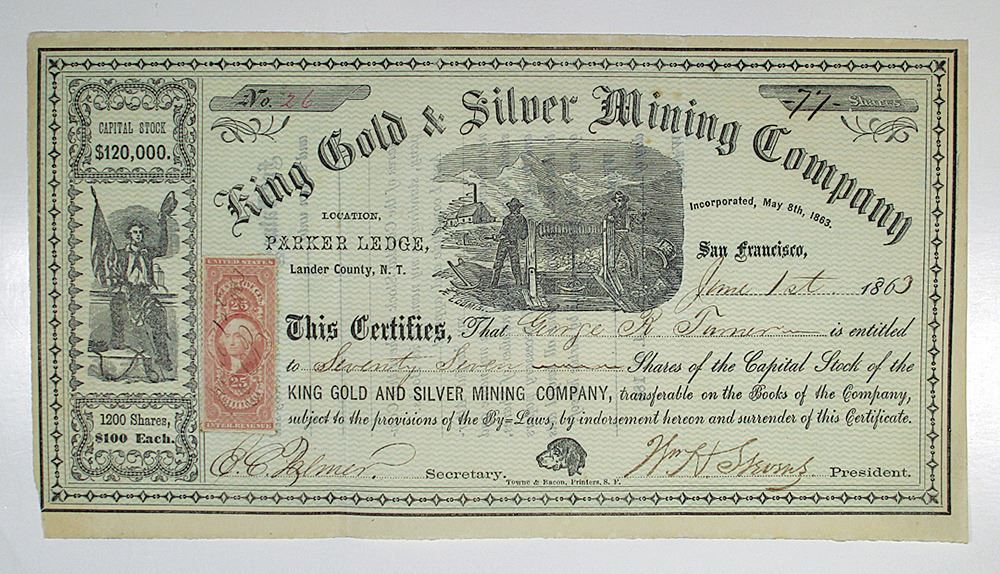 No. 26
-77- Shares
CAPITAL STOCK
$120,000.
King Gold & Silver Mining Company
LOCATION,
PARKER LEDGE,
Lander County, N. T.
Incorporated, May 8th, 1863.
San Francisco,
June 1st 1863
UNITED STATES
25
25
INTER. REVENUE
This Certifies, That George R Turner is entitled
to Seventy Seven Shares of the Capital Stock of the
KING GOLD AND SILVER MINING COMPANY, transferable on the Books of the Company,
subject to the provisions of the By-Laws, by indorsement hereon and surrender of this Certificate.
1200 Shares,
$100 Each.
E. C. Palmer Secretary.
Wm H Stevens President.
Towne & Bacon, Printers, S. F.